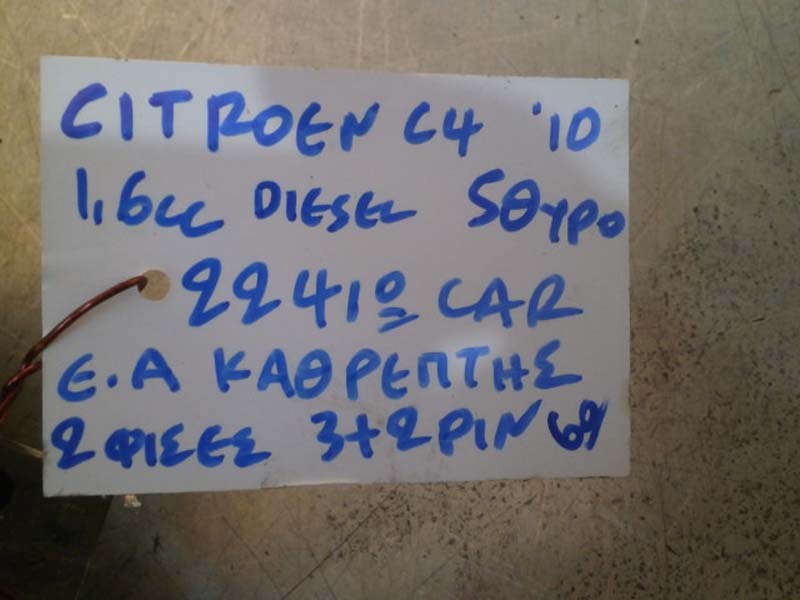 CITROEN C4 '10
1,6cc DIESEL 5ΘΥΡΟ
2241º CAR
Ε.Α ΚΑΘΡΕΠΤΗΣ
2 ΦΙΣΕΣ 3+2 PIN